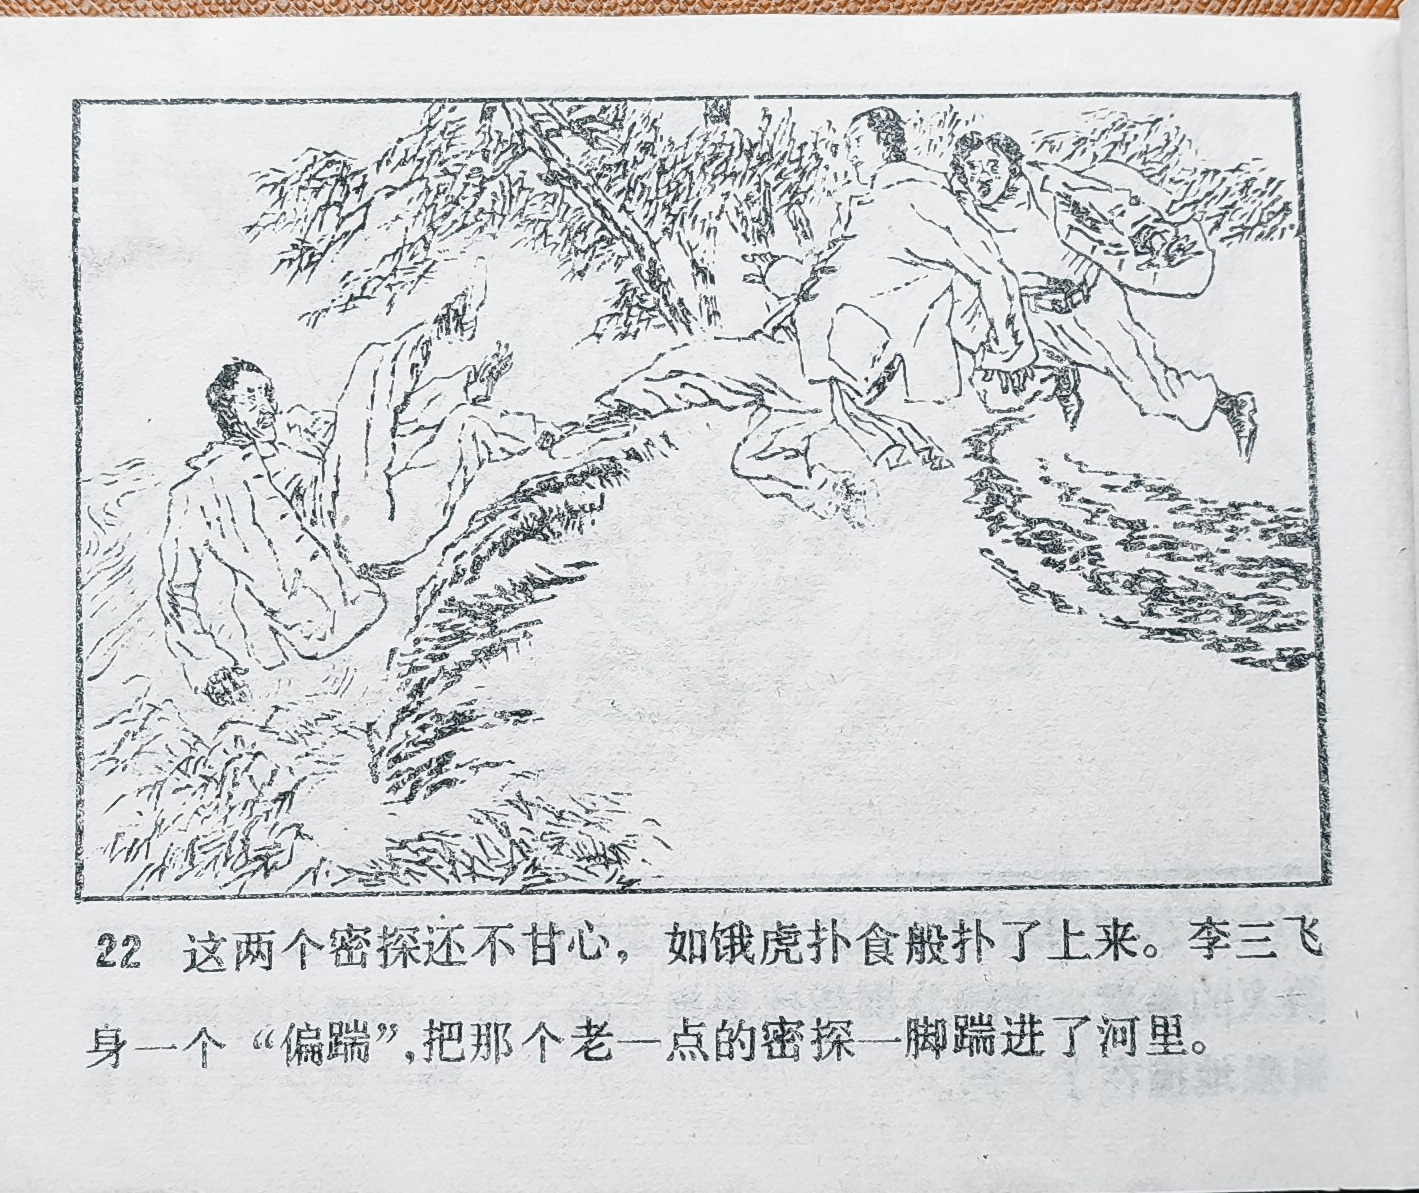 22 这两个密探还不甘心，如饿虎扑食般扑了上来。李三飞
身一个“偏踹”,把那个老一点的密探一脚踹进了河里。